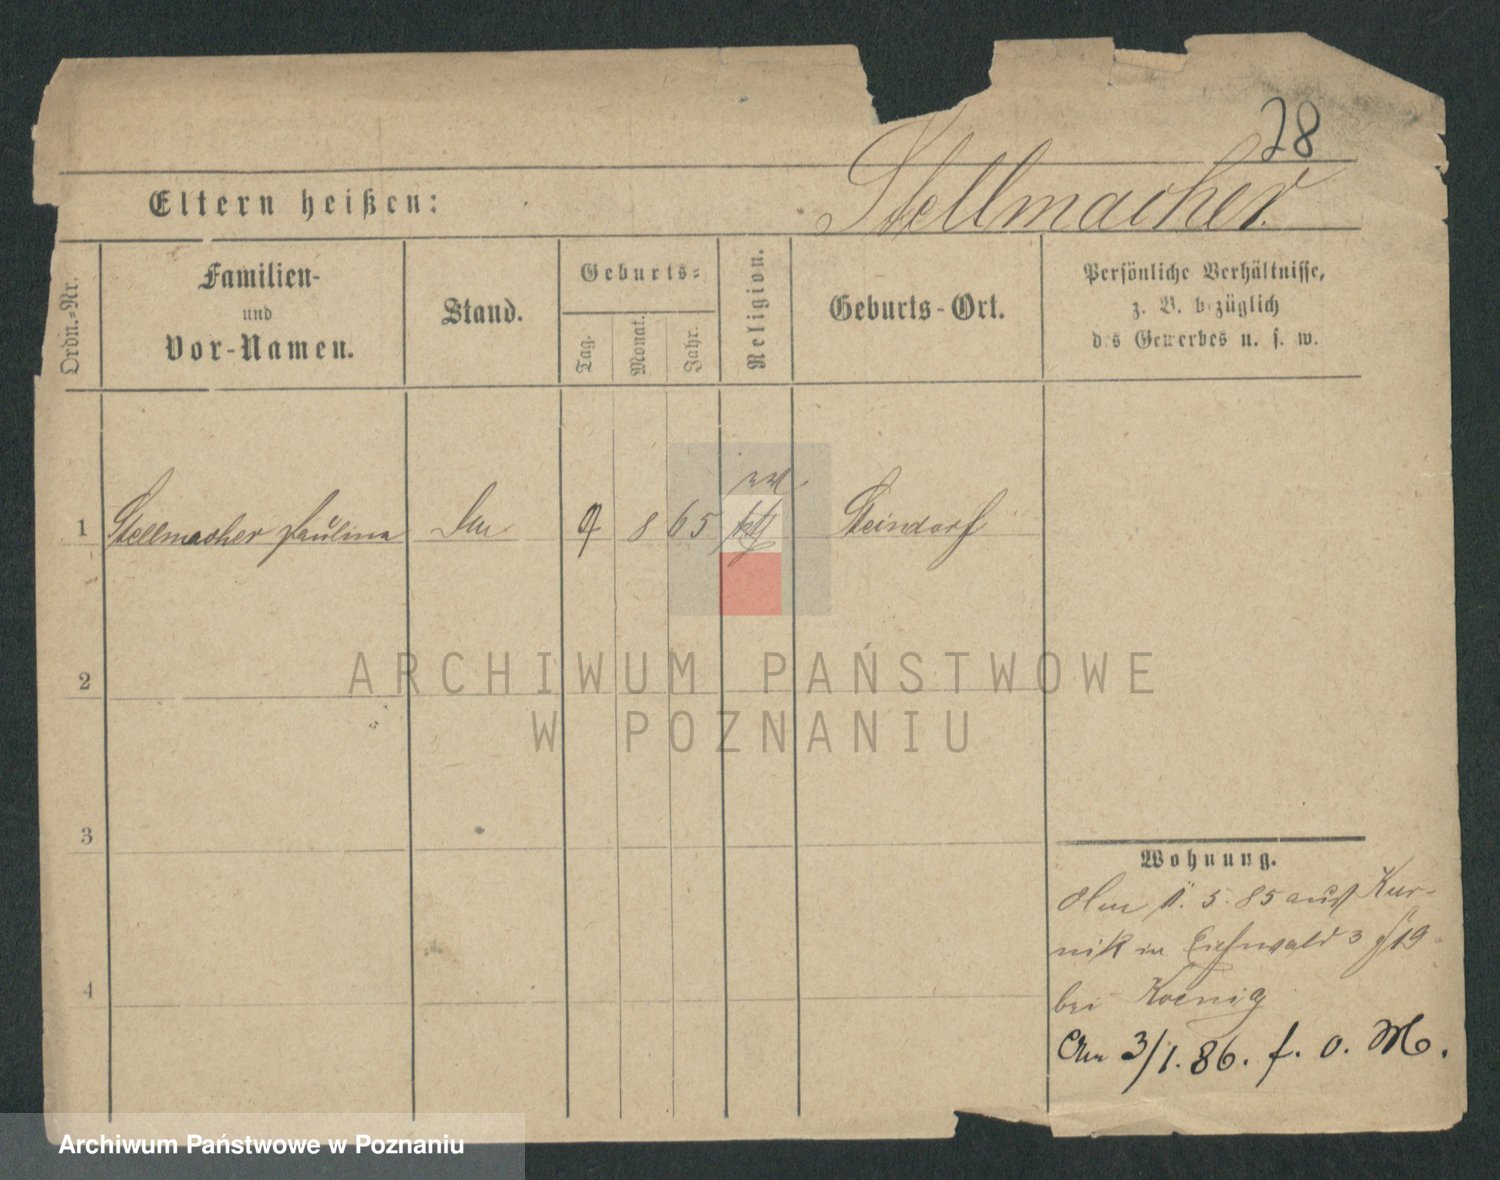 28
Stellmacher.
Eltern heißen:
Ordn.-Nr.
Familien-
und
Vor-Namen.
Stand.
Geburts-
Tag.
Monat.
Jahr.
Religion.
Geburts-Ort.
Persönliche Verhältnisse,
z. B. bezüglich
des Gewerbes u. s. w.
1 Stellmacher Paulina 9 8 65 Steindorf
2
3
4
ARCHIWUM PAŃSTWOWE
W POZNANIU
Wohnung.
5. 85 aus Kur-
nik in Eichwald 3 19
bei Koenig
Am 3/1. 86. f. o. M.
Archiwum Państwowe w Poznaniu